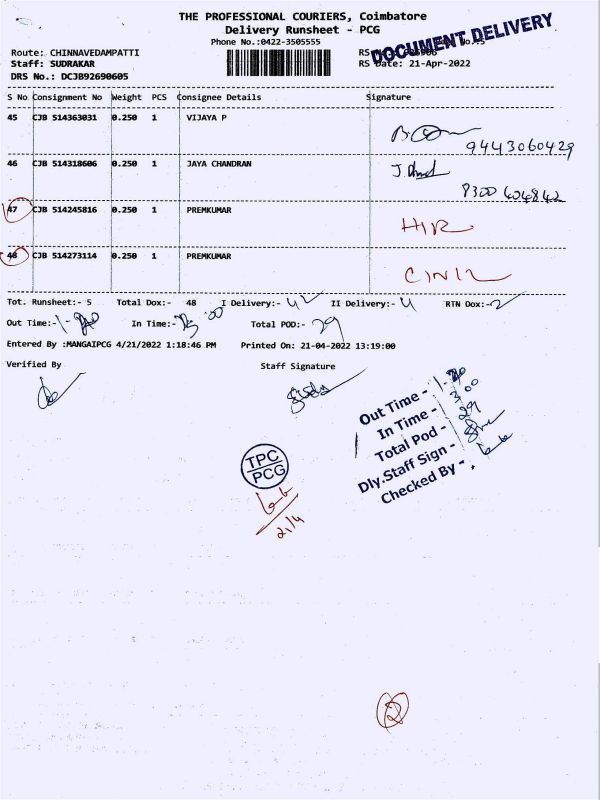 THE PROFESSIONAL COURIERS, Coimbatore
Delivery Runsheet - PCG
Phone No.:0422-3505555
DOCUMENT DELIVERY
Route: CHINNAVEDAMPATTI
Staff: SUDRAKAR
RS Date: 21-Apr-2022
DRS No.: DCJB92690605
S No Consignment No Weight PCS Consignee Details Signature
45 CJB 514363031 0.250 1 VIJAYA P
9443060429
46 CJB 514318606 0.250 1 JAYA CHANDRAN
8300 404842
47 CJB 514245816 0.250 1 PREMKUMAR
48 CJB 514273114 0.250 1 PREMKUMAR
Tot. Runsheet:- 5 Total Dox:- 48 I Delivery:- 42 II Delivery:- 4 RTN Dox:- 2
Out Time:- In Time:- Total POD:- 29
Entered By :MANGAIPCG 4/21/2022 1:18:46 PM Printed On: 21-04-2022 13:19:00
Verified By Staff Signature
Out Time -
In Time - 3.00
Total Pod - 29
Dly.Staff Sign -
Checked By -
TPC
PCG
21/4
2